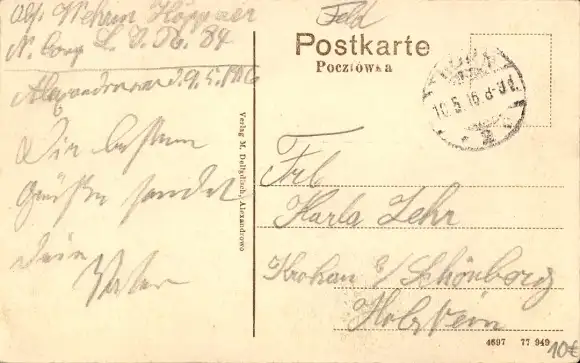 Abs. Wehrm. Höppner
N. Comp. L. I. R. 84
Alexandrowo d. 9.5.1916
Die besten
Grüße sendet
Dein
Vater
Feld
Postkarte
Pocztówka
10.5.16.8-9V.
Verlag M. Deligdisch, Alexandrowo
Frl
Karla Lehr
Krokau b/Schönberg
Holstein
4697 77 949
10€